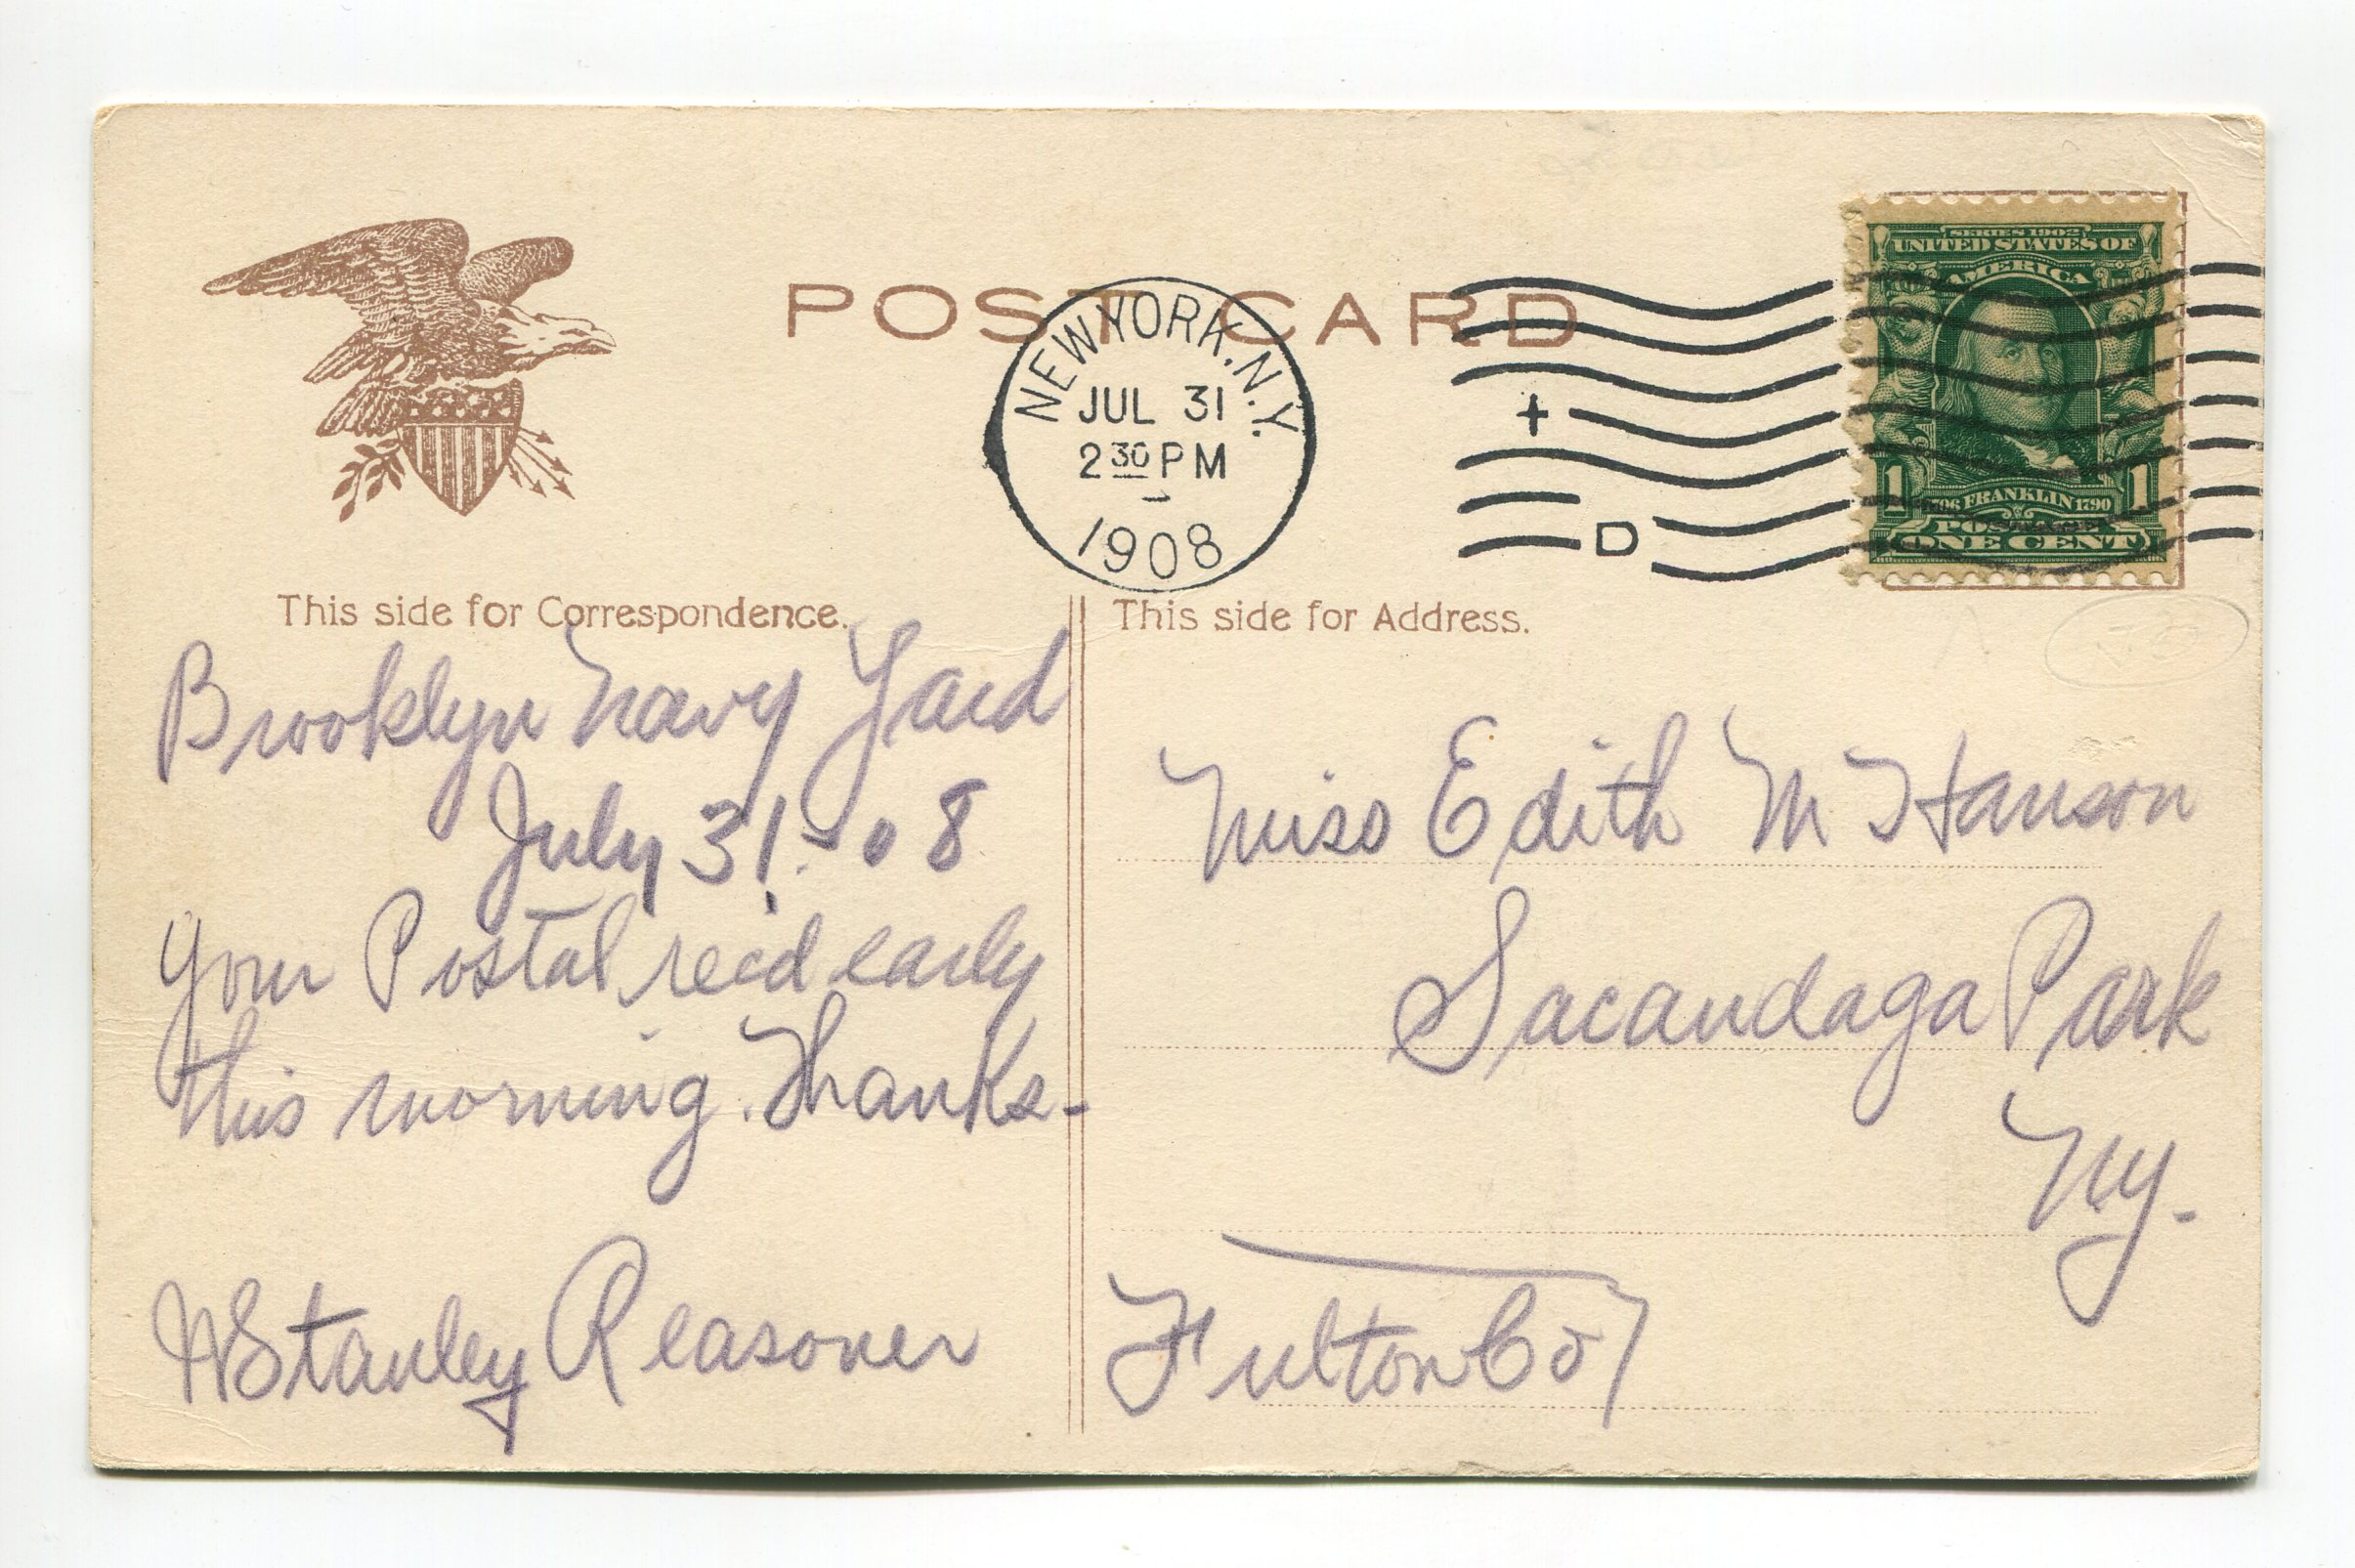 POST CARD
NEW YORK, N.Y.
JUL 31
2 30 PM
1908
D
SERIES 1902
UNITED STATES OF
AMERICA
1 1706 FRANKLIN 1790 1
POSTAGE
ONE CENT
This side for Correspondence.
Brooklyn Navy Yard
July 31 - 08
Your Postal recd early
this morning. Thanks -
Stanley Reasoner
This side for Address.
Miss Edith M Hanson
Sacandaga Park
Ny.
Fulton Co